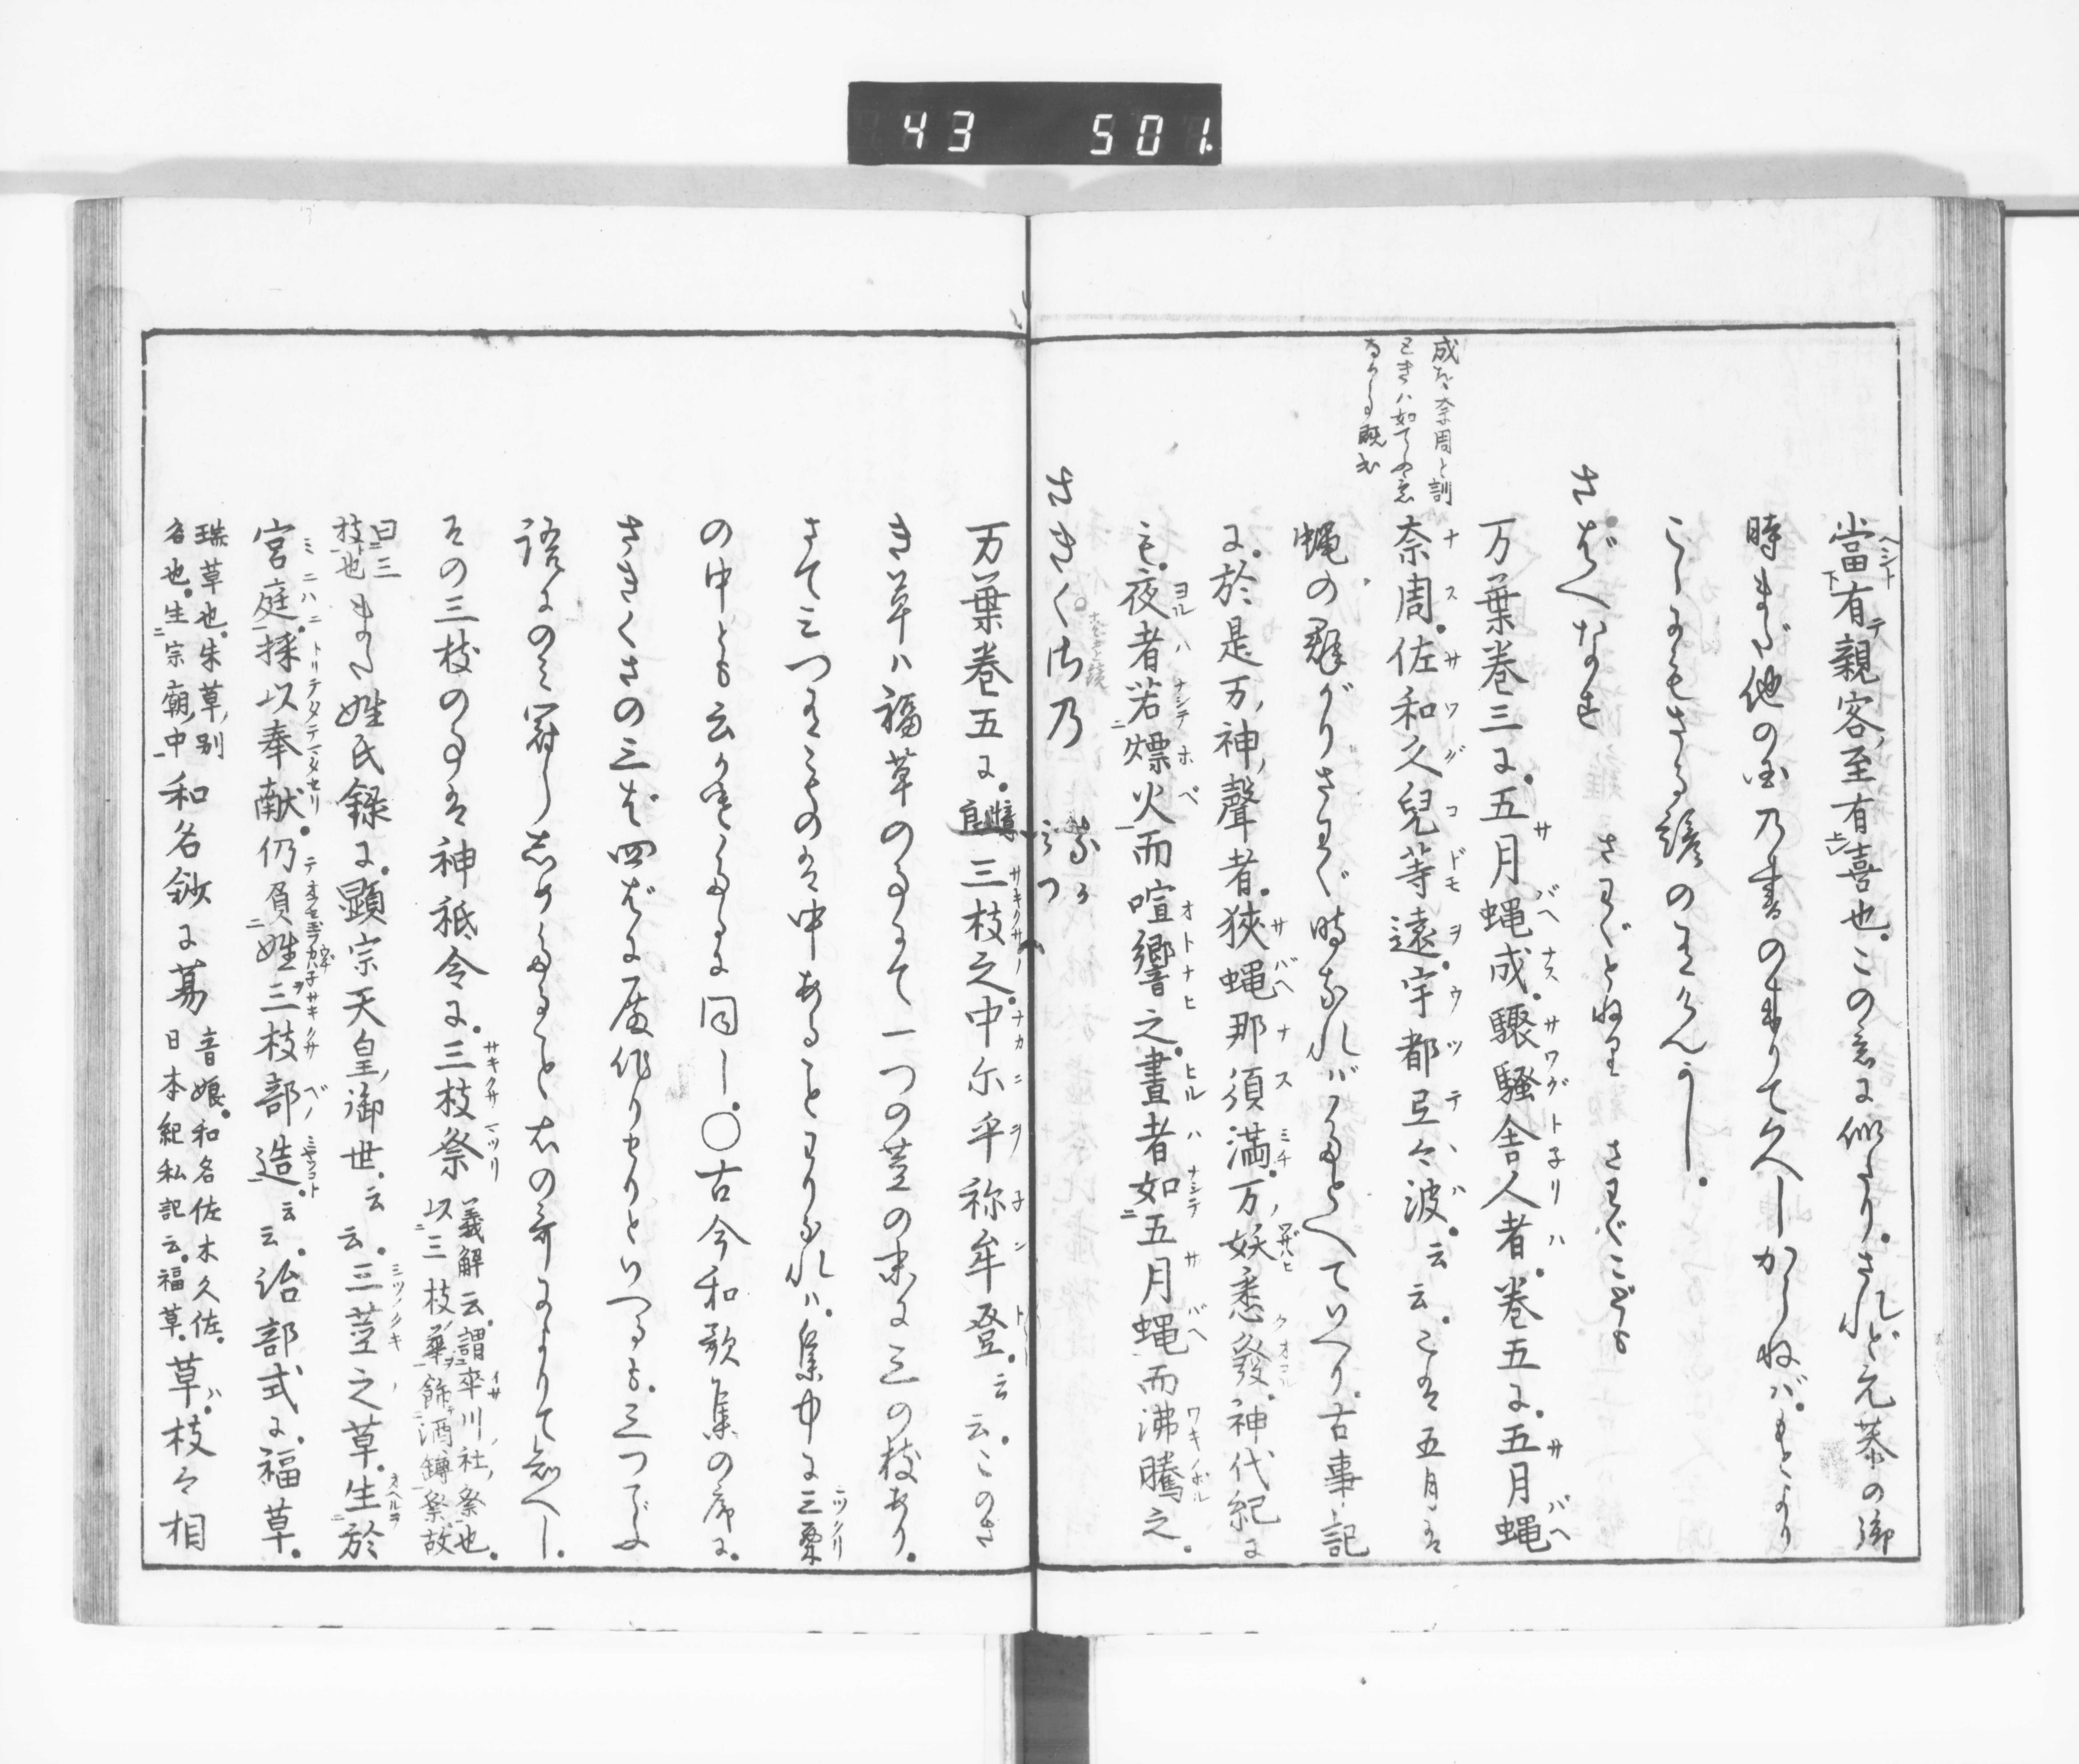 43 501.
當有親客至有喜也。この意に似たり。されど允恭の御
時まだ他の国乃書のまゐりて久しからねバ。もとより
こゝにもさる諺の有けんかし。
さばへなす さわぐとねり さわぐこども
万葉巻三に。五月蝿成。驟騒舎人者。巻五に。五月蝿
奈周。佐和久兒等遠。宇都弖々波。云云。こは五月は
成を奈周と訓
ときハ如てふ意
なる事既出
蝿の群がりさわぐ時なれバ
たとへていへり。古事記
に。於是万神聲者。狹蝿那須満。万妖悉發。神代紀に
も。夜者若熛火而喧響之。晝者如五月蝿而沸騰之。
さきくさ乃
なか
みつ
万葉巻五に。三枝之。中尓乎祢牟登。云云。このさ
き草ハ福草の事にて一つの茎の末に三の枝あり。
さて三つ有ものは中あることわりなれバ。集中に三栗
の中とも云かけたるに同し。○古今和歌集の序に。
さきくさの三ば四ばに殿作りせりといへるも。三つてふ
語にのみ冠らしめたること右の哥によりて知べし。
その三枝の事は神祇令に。三枝祭
義解云。謂率川社祭也。
以三枝華飾酒罇祭故
曰三
枝也
また姓氏録に。顯宗天皇御世。云云。三茎之草。生於
宮庭。採以奉献。仍負姓三枝部造。云云。治部式に。福草。
瑞草也。朱草別
名也。生宗廟中
和名鈔に葛
音娘。和名佐木久佐。
日本紀私記云。福草。
草枝々相